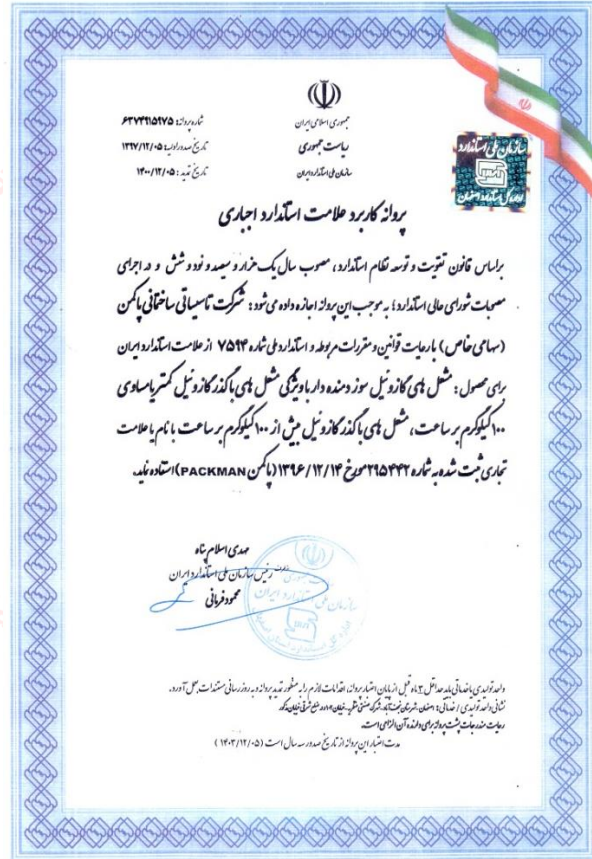 جمهوری اسلامی ایران
ریاست جمهوری
سازمان ملی استاندارد ایران
شماره پروانه: ۶۳۷۴۹۱۵۹۷۵
تاریخ صدور اولیه: ۱۳۹۷/۱۲/۰۵
تاریخ تمدید: ۱۴۰۰/۱۲/۰۵
سازمان ملی استاندارد
اداره کل استاندارد اصفهان
پروانه کاربرد علامت استاندارد اجباری
براساس قانون تقویت و توسعه نظام استاندارد، مصوب سال یک هزار و سیصد و نود و شش و در اجرای
مصوبات شورای عالی استاندارد؛ به موجب این پروانه اجازه داده می شود: شرکت تاسیساتی ساختمانی پاکمن
(سهامی خاص) با رعایت قوانین و مقررات مربوطه و استاندارد ملی شماره ۷۵۹۴ از علامت استاندارد ایران
برای محصول: مشعل های گازوئیل سوز دمنده دار با ویژگی مشعل های با گذر گازوئیل کمتر یا مساوی
۱۰۰ کیلوگرم بر ساعت، مشعل های با گذر گازوئیل بیش از ۱۰۰ کیلوگرم بر ساعت با نام یا علامت
تجاری ثبت شده به شماره ۲۹۵۴۴۲ مورخ ۱۳۹۶/۱۲/۱۴ (پاکمن PACKMAN) استفاده نماید.
مهدی اسلام پناه
رئیس سازمان ملی استاندارد ایران
محمود فرمانی
واحد تولیدی یا خدماتی باید حداقل ۳ ماه قبل از پایان اعتبار پروانه، اقدامات لازم را به منظور تمدید پروانه و به روز رسانی مستندات بعمل آورد.
نشانی واحد تولیدی / خدماتی: اصفهان، شهرستان نجف آباد، شهرک صنعتی
رعایت مندرجات پشت پروانه برای دارنده آن الزامی است.
مدت اعتبار این پروانه از تاریخ صدور سه سال است (۱۴۰۳/۱۲/۰۵)